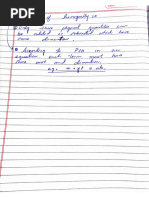 of Homogenity :-
Only those physical quantities can
be added or subtracted which have
same dimension.
According to POH in an
equation each term must have
same unit and dimension.
e.g. :-